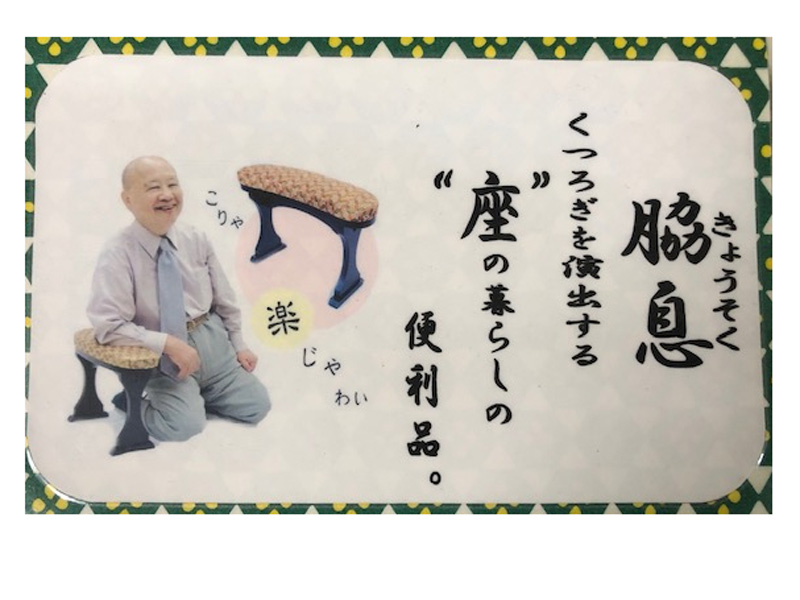 きょうそく
脇息
くつろぎを演出する
“座”の暮らしの
便利品。
こりゃ
楽
じゃ
わい